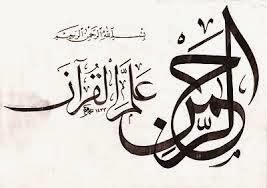 بسم الله الرحمن الرحيم
الرحمن
علم القرآن
١٤٢٢